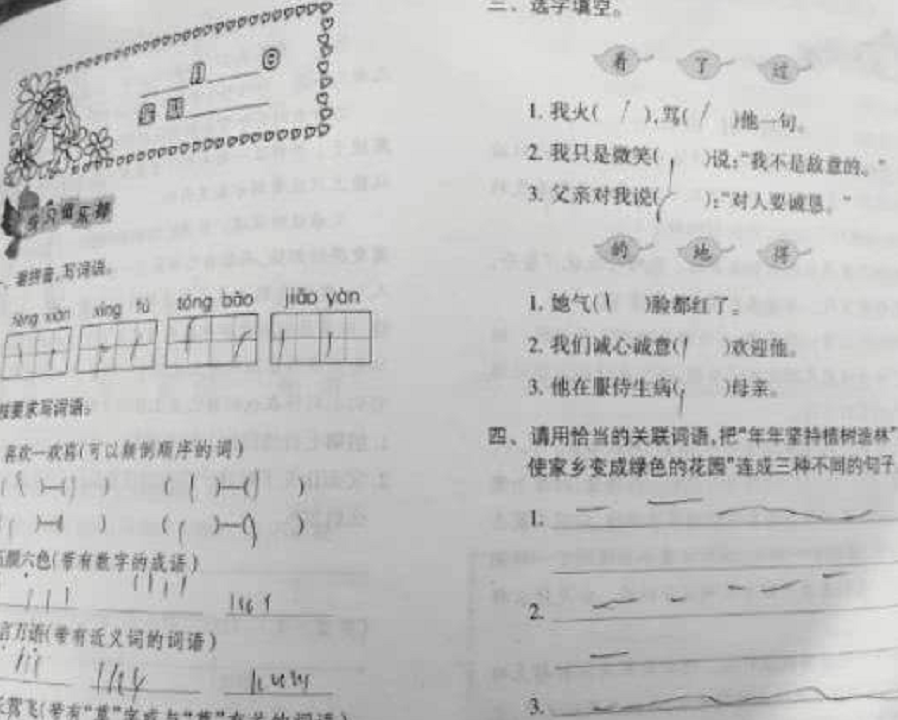 看拼音,写词语。
xìng fú tóng bāo jiāo yàn
按要求写词语。
喜欢—欢喜(可以颠倒顺序的词)
( )—( ) ( )—( )
( )—( ) ( )—( )
五颜六色(带有数字的成语)
言万语(带有近义词的词语)
三、选字填空。
着 了 过
1. 我火( ),骂( )他一句。
2. 我只是微笑( )说:“我不是故意的。”
3. 父亲对我说( ):“对人要诚恳。”
的 地 得
1. 她气( )脸都红了。
2. 我们诚心诚意( )欢迎他。
3. 他在服侍生病( )母亲。
四、请用恰当的关联词语,把“年年坚持植树造林”
使家乡变成绿色的花园”连成三种不同的句子
1.
2.
3.